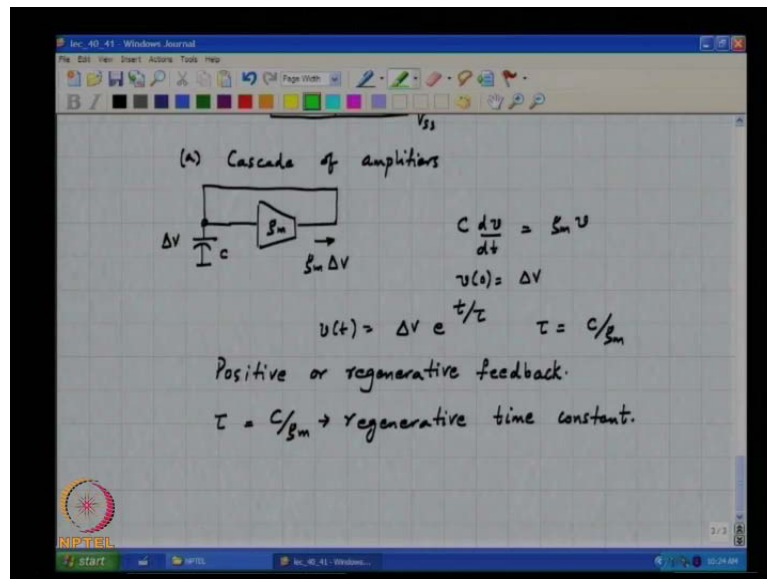 lec_40_41 - Windows Journal
File Edit View Insert Actions Tools Help
Page Width
B I
VSS
(a) Cascade of amplifiers
gm
ΔV
C
gm ΔV
C dv/dt = gm v
v(0) = ΔV
v(t) = ΔV e^{t/τ} τ = C/gm
Positive or regenerative feedback.
τ = C/gm → regenerative time constant.
NPTEL
2/3
start
NPTEL
lec_40_41 - Windows...
10:24 AM